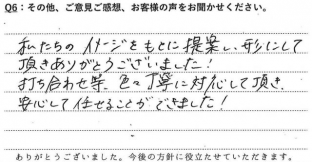 Q6：その他、ご意見ご感想、お客様の声をお聞かせください。
私たちのイメージをもとに提案し、形にして
頂きありがとうございました！
打ち合わせ等、色々丁寧に対応して頂き、
安心して任せることができました！
ありがとうございました。今後の方針に役立たせていただきます。